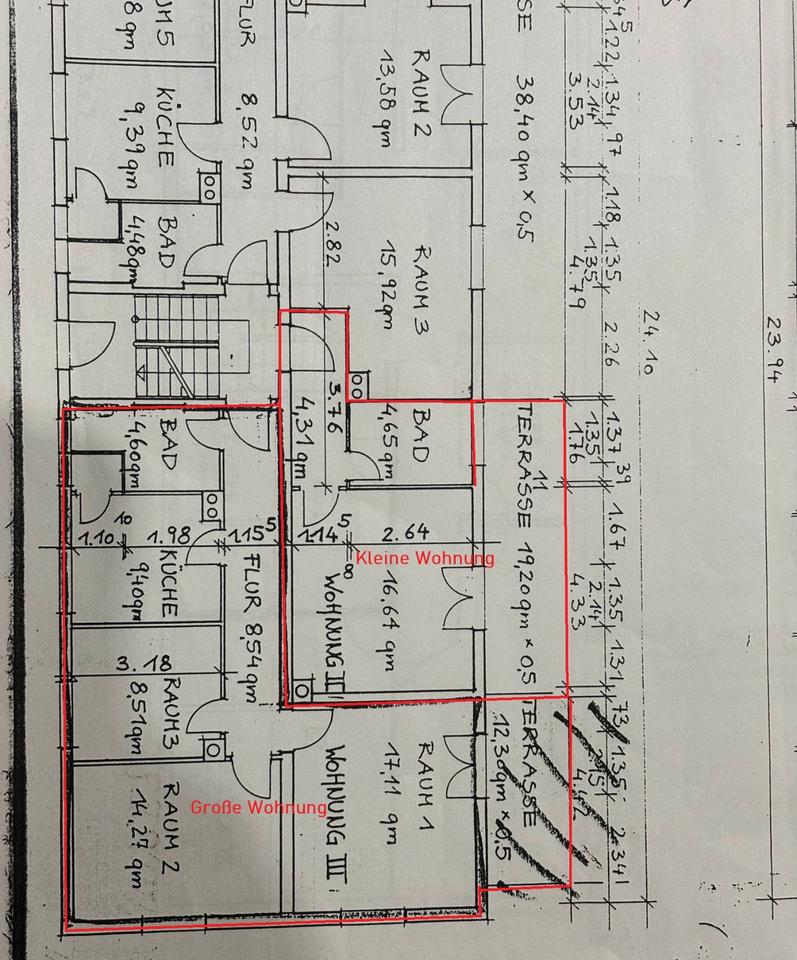 UM 5
8 qm
FLUR
8,52 qm
KÜCHE
9,39 qm
BAD
4,48qm
RAUM 2
13,58 qm
RAUM 3
15,92qm
2.82
SSE 38,40 qm x 0,5
3.76
4,31 qm
BAD
4,65qm
BAD
4,60qm
1.10
10
1.98
1.15⁵
1.14⁵
8
2.64
KÜCHE
9,40qm
FLUR 8,54 qm
Kleine Wohnung
16.64 qm
WOHNUNG II
TERRASSE 19,20qm x 0,5
11
3.18
RAUM3
8,51qm
RAUM 2
14,27 qm
Große Wohnung
WOHNUNG III
RAUM 1
17,11 qm
TERRASSE
12,30qm x 0,5
1.22
1.34
2.14
97
3.53
1.18
1.35
1.35
4.79
2.26
1.37
1.35
39
1.76
1.67
1.35
2.14
4.33
1.31
73
1.35
2.34
24.10
23.94
11
11